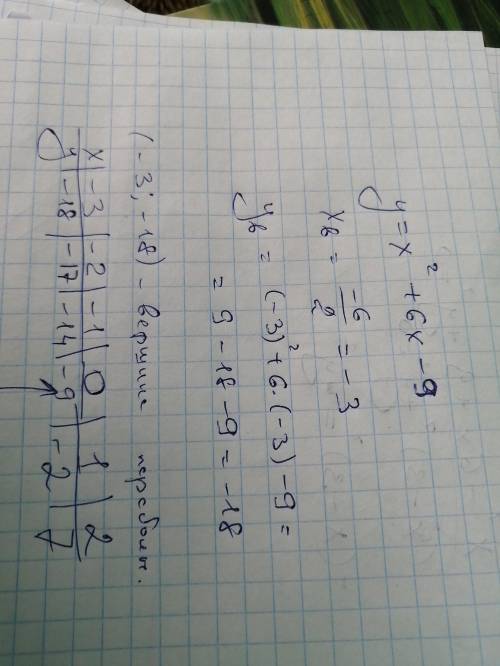 y = x² + 6x - 9
xв = -6/2 = -3
yв = (-3)² + 6·(-3) - 9 =
= 9 - 18 - 9 = -18
(-3; -18) - вершина параболы.
x | -3 | -2 | -1 | 0 | 1 | 2
y | -18 | -17 | -14 | -9 | -2 | 7